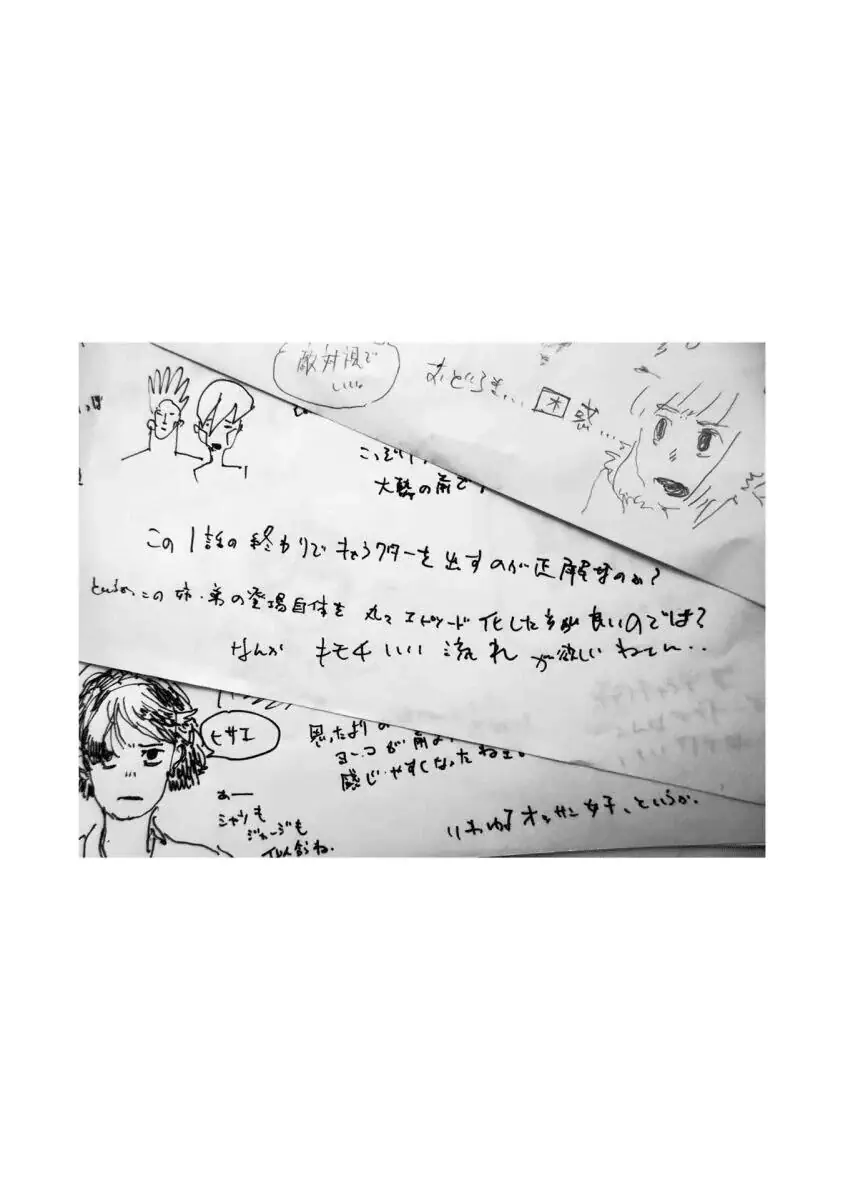 敵対視で
いい。
おどろき... 困惑...
大勢の前で
この1話の終わりでキャラクターを出すのが正解なのか?
というか、この姉・弟の登場自体を 丸々エピソード化した方が良いのでは?
なんか キモチいい流れが欲しいねてん..
ヒサエ
思ったより
ヨーコが前
感じやすくなったねェ。
あー
シャツも
ジャージも
いわゆるオッサン女子、というか.